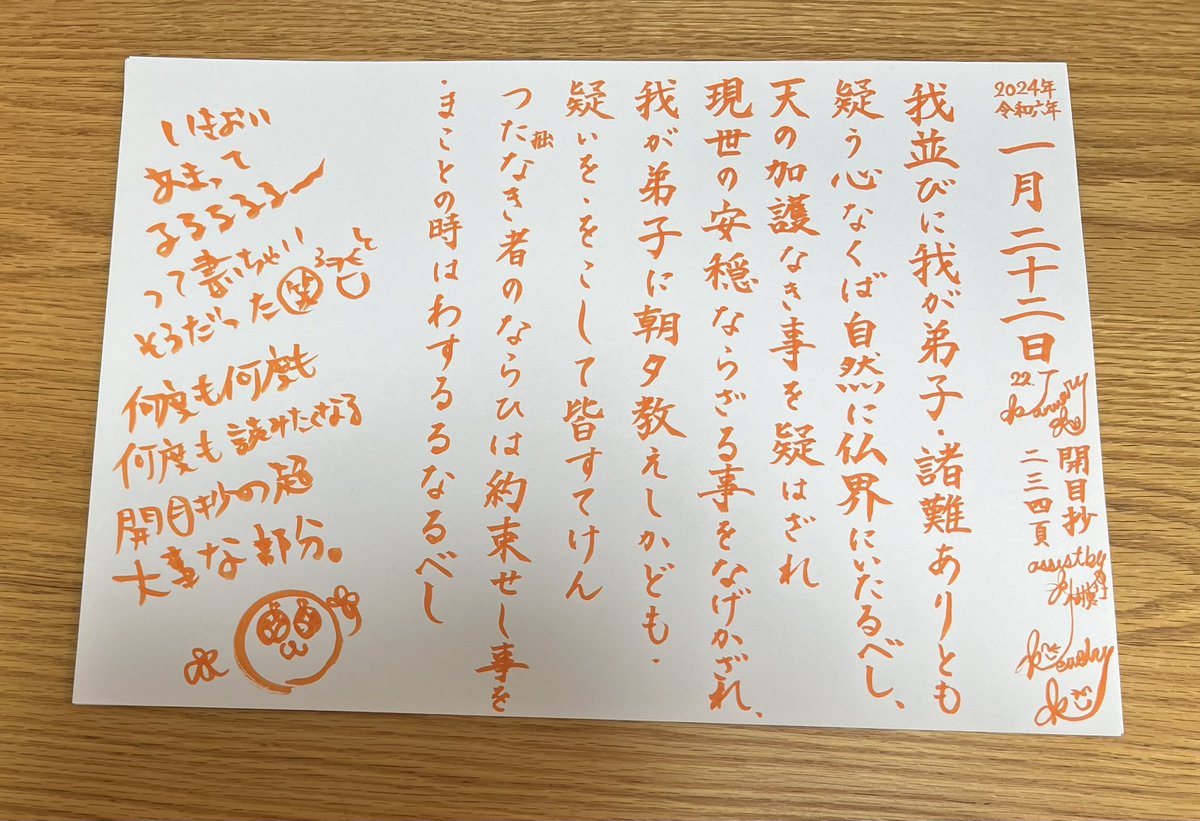 2024年
令和六年
一月二十二日
22. January
開目抄
二三四頁
assist by
我並びに我が弟子・諸難ありとも
疑う心なくば自然に仏界にいたるべし、
天の加護なき事を疑はざれ
現世の安穏ならざる事をなげかざれ、
我が弟子に朝夕教えしかども・
疑いを・をこして皆すてけん
つたなき者のならひは約束せし事を
拙
・まことの時はわするるなるべし
いきおい
あまって
るるるるるー
って書いちゃい
そうだった笑
何度も何度も
何度も読みたくなる
開目抄の超
大事な部分。